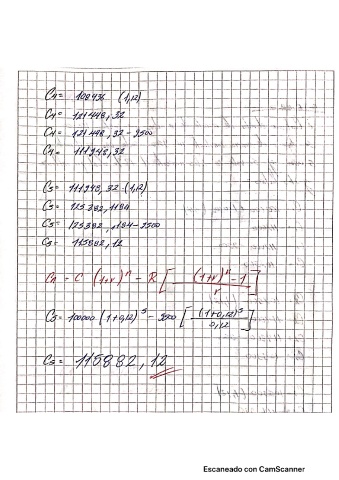 C4= 108436 (1,12)
C4= 121448,32
C4= 121448,32 - 9500
C4= 111948,32
C5= 111948,32 · (1,12)
C5= 125382,1184
C5= 125382,1184 - 9500
C5= 115882,12
Cn = C (1+r)^n - R [ (1+r)^n - 1 / r ]
C5= 100000 (1+0,12)^5 - 9500 [ (1+0,12)^5 / 0,12 ]
C5= 115882,12
Escaneado con CamScanner